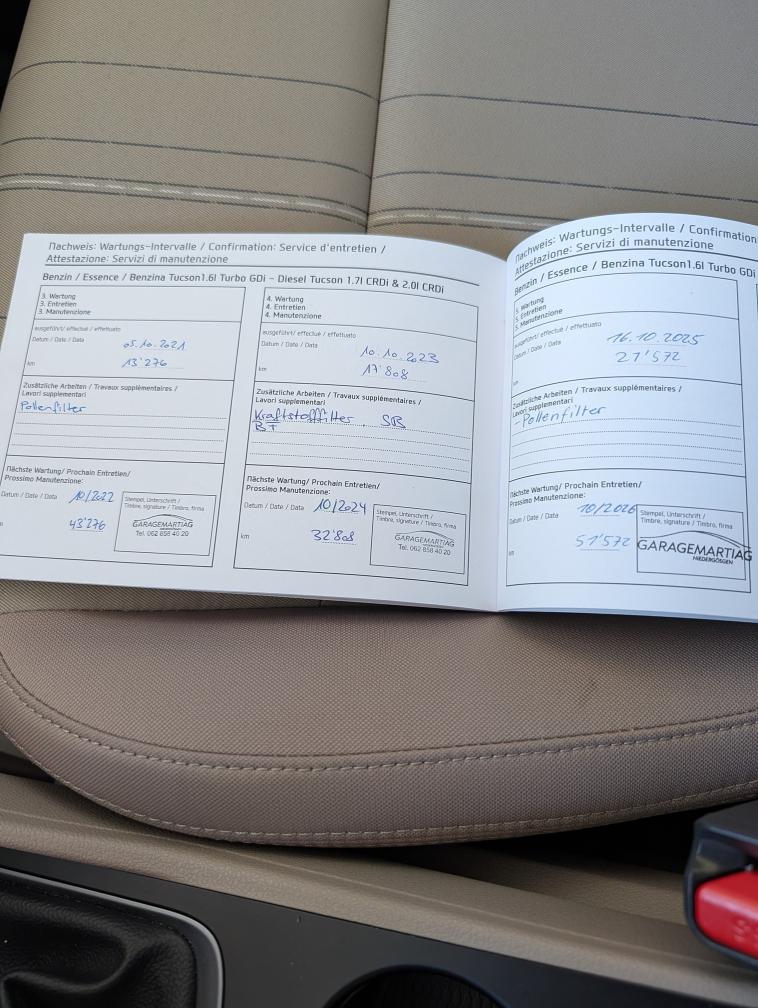 Nachweis: Wartungs-Intervalle / Confirmation: Service d'entretien /
Attestazione: Servizi di manutenzione
Benzin / Essence / Benzina Tucson1.6l Turbo GDi - Diesel Tucson 1.7l CRDi & 2.0l CRDi
3. Wartung
3. Entretien
3. Manutenzione
ausgeführt/ effectué / effettuato
Datum / Date / Data 05.10.2021
km 13'276
Zusätzliche Arbeiten / Travaux supplémentaires /
Lavori supplementari
Pollenfilter
Nächste Wartung/ Prochain Entretien/
Prossimo Manutenzione:
Datum / Date / Data 10/2022
43'276
Stempel, Unterschrift /
Timbre, signature / Timbro, firma
GARAGEMARTIAG
Tel. 062 858 40 20
4. Wartung
4. Entretien
4. Manutenzione
ausgeführt/ effectué / effettuato
Datum / Date / Data 10.10.2023
km 17'808
Zusätzliche Arbeiten / Travaux supplémentaires /
Lavori supplementari
Kraftstofffilter, SB
BT
Nächste Wartung/ Prochain Entretien/
Prossimo Manutenzione:
Datum / Date / Data 10/2024
km 32'808
Stempel, Unterschrift /
Timbre, signature / Timbro, firma
GARAGEMARTIAG
Tel. 062 858 40 20
Nachweis: Wartungs-Intervalle / Confirmation
Attestazione: Servizi di manutenzione
Benzin / Essence / Benzina Tucson1.6l Turbo GDi
5. Wartung
5. Entretien
5. Manutenzione
ausgeführt/ effectué / effettuato
Datum / Date / Data 16.10.2025
km 21'572
Zusätzliche Arbeiten / Travaux supplémentaires /
Lavori supplementari
-Pollenfilter
Nächste Wartung/ Prochain Entretien/
Prossimo Manutenzione:
Datum / Date / Data 10/2026
km 51'572
Stempel, Unterschrift /
Timbre, signature / Timbro, firma
GARAGEMARTIAG
NIEDERGÖSGEN